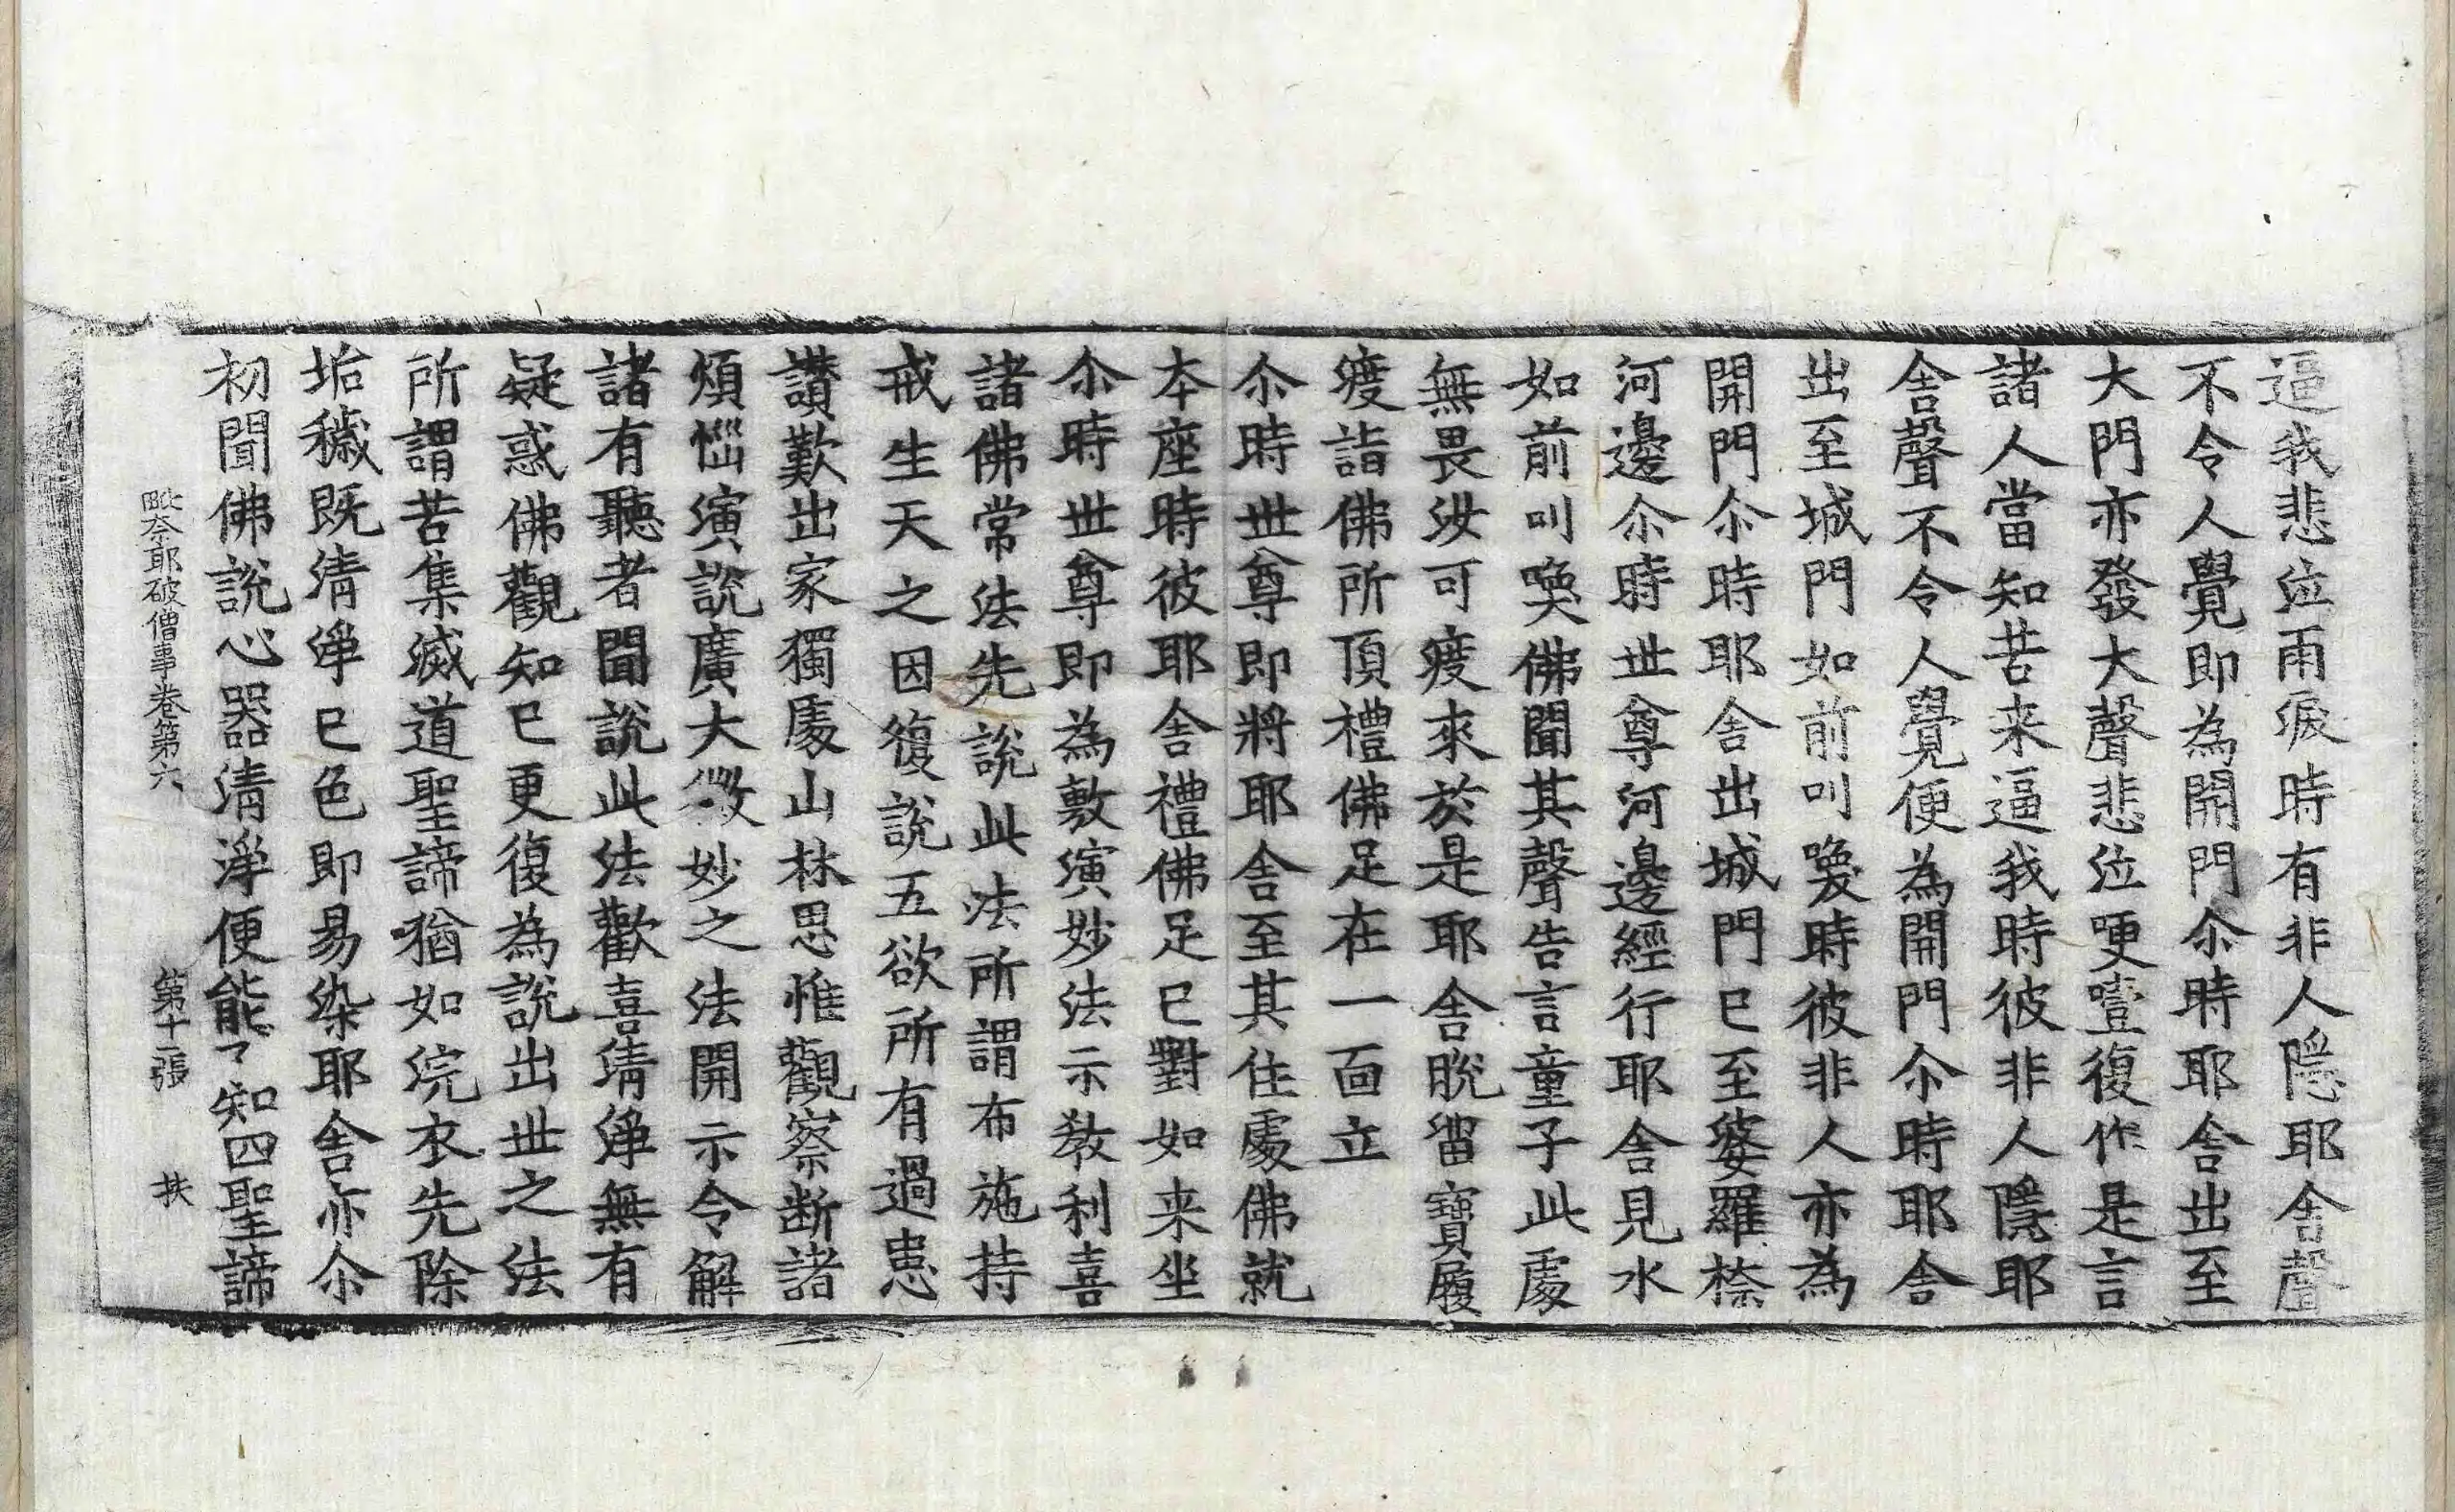 逼我悲泣雨淚時有非人隱耶舍聲
不令人覺即為開門尒時耶舍出至
大門亦發大聲悲泣哽噎復作是言
諸人當知苦来逼我時彼非人隱耶
舍聲不令人覺便為開門尒時耶舍
出至城門如前叫喚時彼非人亦為
開門尒時耶舍出城門已至婆羅㮈
河邊尒時世尊河邊經行耶舍見水
如前叫喚佛聞其聲告言童子此處
無畏汝可疲來於是耶舍脫留寶屨
疲詣佛所頂禮佛足在一面立
尒時世尊即將耶舍至其住處佛就
本座時彼耶舍禮佛足已對如来坐
尒時世尊即為敷演妙法示教利喜
諸佛常法先說此法所謂布施持
戒生天之因復說五欲所有過患
讚歎出家獨處山林思惟觀察断諸
煩惱演說廣大微妙之法開示令解
諸有聽者聞說此法歡喜清淨無有
疑惑佛觀知已更復為說出世之法
所謂苦集滅道聖諦猶如浣衣先除
垢穢既清淨已色即易染耶舍亦尒
初聞佛說心器清淨便能了知四聖諦
毗奈耶破僧事卷第六 第十二張 扶